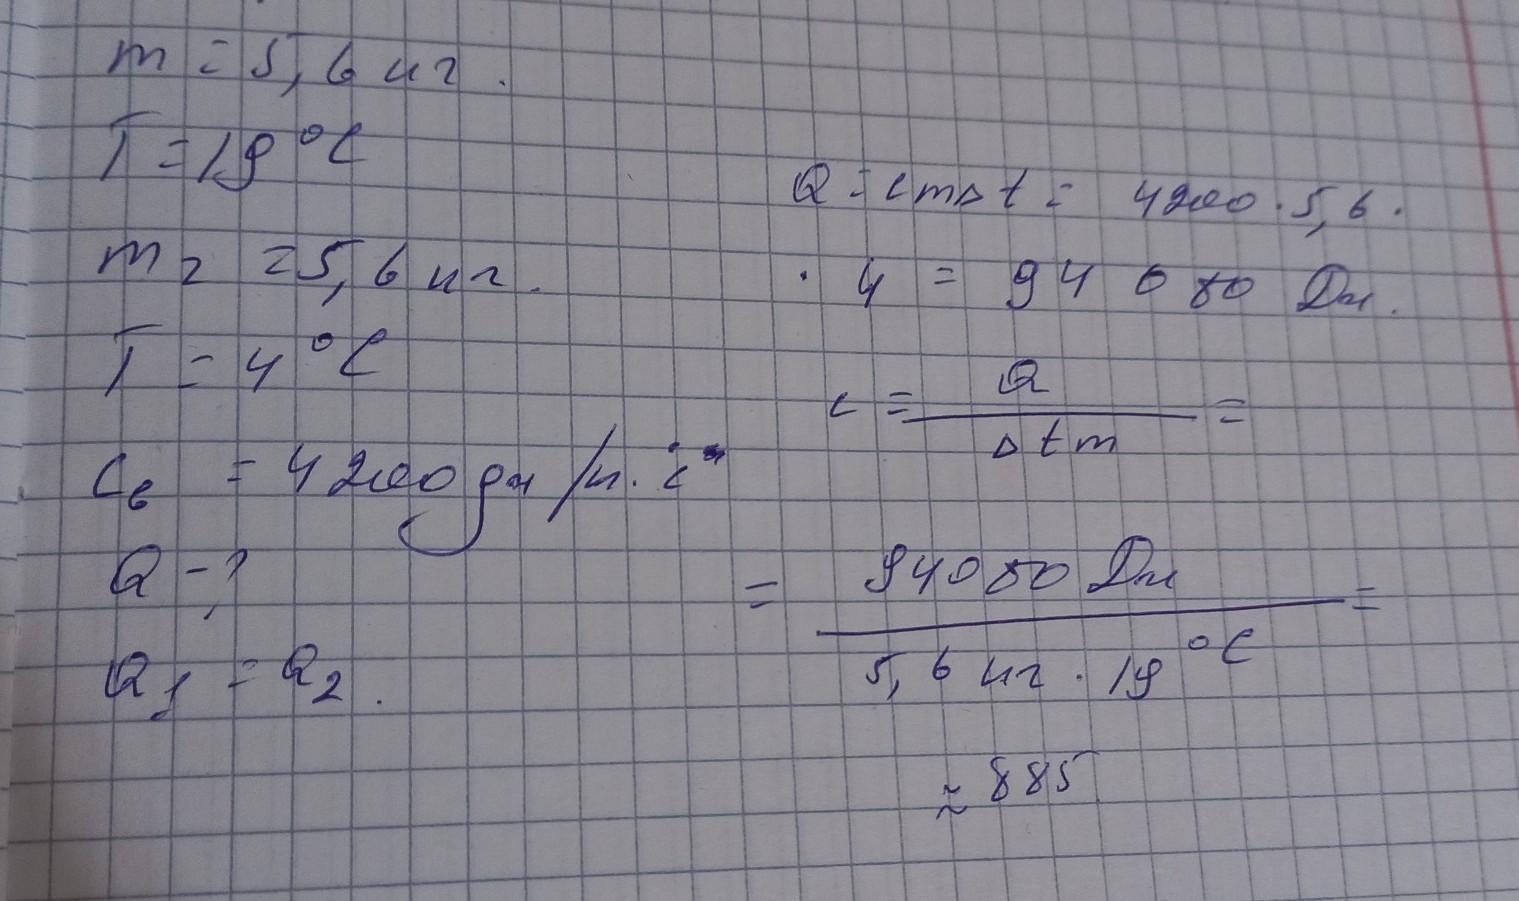 m = 5,6 кг.
T = 19 °C
m₂ = 5,6 кг.
T = 4 °C
Cв = 4200 дж/к. c°
Q - ?
Q₁ = Q₂.
Q = cmΔt = 4200 · 5,6 ·
· 4 = 94 080 Дж.
c = Q / Δtm =
= 94080 Дж / 5,6 кг · 19 °C =
≈ 885